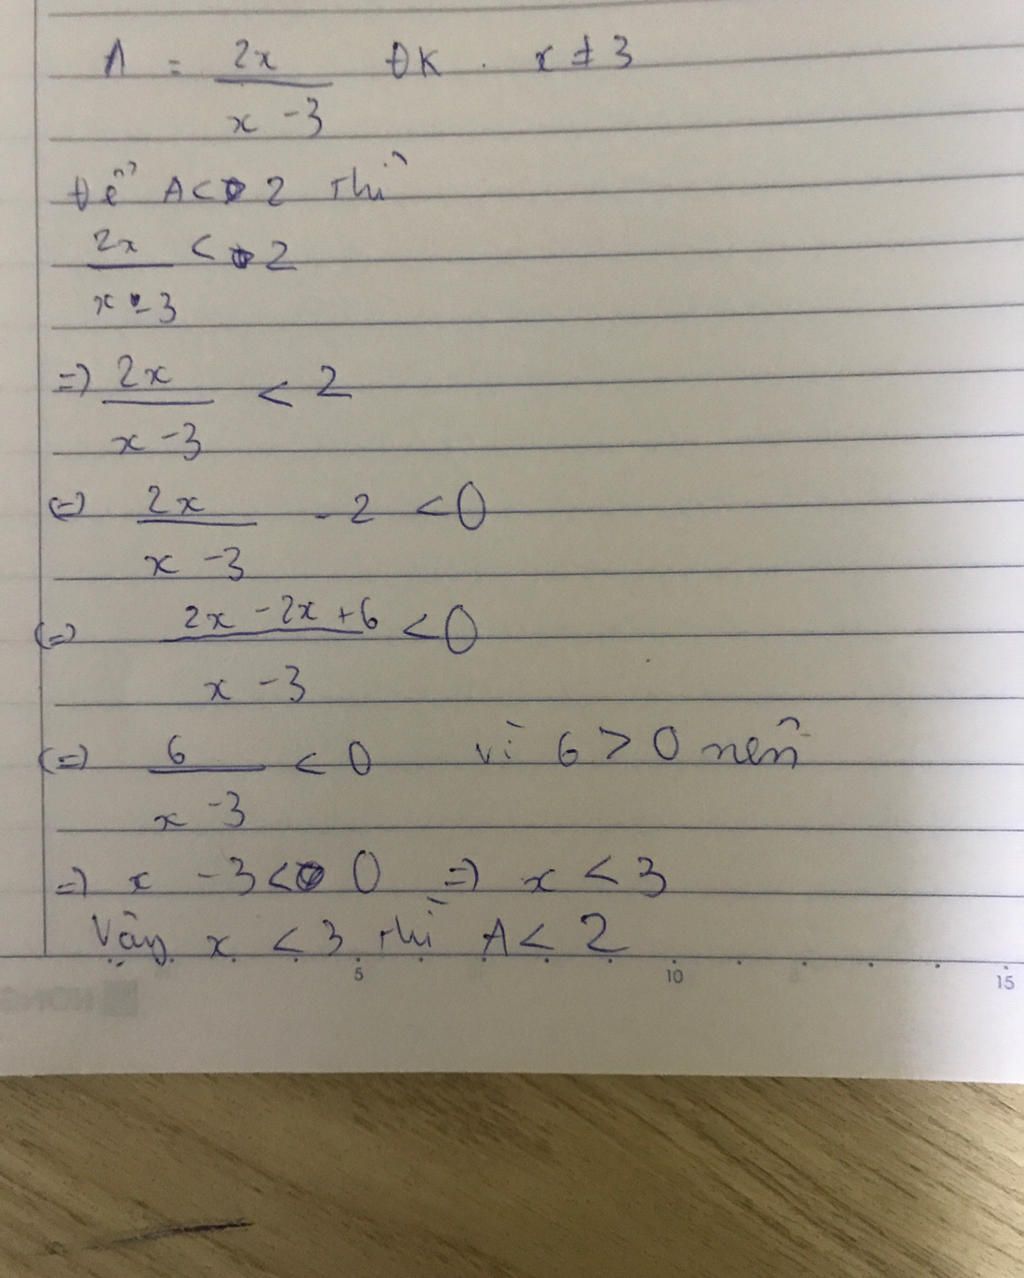 A = 2x / x - 3 ĐK. x ≠ 3
Để A < 2 thì
2x / x - 3 < 2
=> 2x / x - 3 < 2
(=) 2x / x - 3 - 2 < 0
(=) 2x - 2x + 6 / x - 3 < 0
(=) 6 / x - 3 < 0 vì 6 > 0 nên
=) x - 3 < 0 =) x < 3
Vậy x < 3 thì A < 2
5 10 15